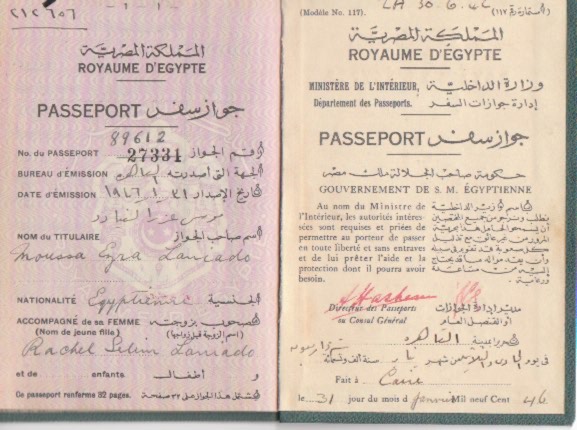 ٢١٢٦٥٦
- ١ -
المملكة المصرية
ROYAUME D'EGYPTE
PASSEPORT جواز سفر
89612
No. du PASSEPORT 27331 رقم الجواز
BUREAU D'ÉMISSION الجهة التى أصدرته
DATE D'ÉMISSION ٣١ ١ ١٩٤٦ تاريخ الإصدار
NOM du TITULAIRE اسم صاحب الجواز
Moussa Ezra Laniado
NATIONALITÉ Egyptienne الجنسية
ACCOMPAGNÉ de sa FEMME مصحوب بزوجته
(Nom de jeune fille) (اسم الزوجة قبل زواجها)
Rachel Selim Laniado
et de enfants أطفال و
Ce passeport renferme 32 pages. يشتمل هذا الجواز على ٣٢ صفحة
(Modèle No. 117) (استمارة رقم ١١٧)
المملكة المصرية
ROYAUME D'ÉGYPTE
MINISTÈRE DE L'INTÉRIEUR, وزارة الداخلية
Département des Passeports. إدارة جوازات السفر
PASSEPORT جواز سفر
حكومة صاحب الجلالة ملك مصر
GOUVERNEMENT DE S. M. ÉGYPTIENNE
Au nom du Ministre de
l'Intérieur, les autorités intéres-
sées sont requises et priées de
permettre au porteur de passer
en toute liberté et sans entraves
et de lui prêter l'aide et la
protection dont il pourra avoir
besoin.
Directeur des Passeports مدير إدارة الجوازات
ou Consul Général أو القنصل العام
القاهرة
Fait à Caire
le 31 jour du mois d Janvier Mil neuf Cent 46